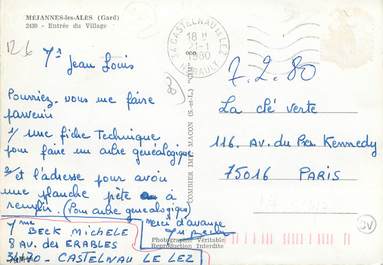 MEJANNES-les-ALES (Gard)
2430 - Entrée du Village
34 CASTELNAU LE LEZ
18 H
1980
HERAULT
Jean Louis
7.2.80
Pourriez-vous me faire
parvenir
1/ une fiche Technique
pour faire un arbre genealogique
2/ et l'adresse pour avoir
une planche prête à
remplir. (Pour arbre genealogique)
merci d'avance
La clé verte
116, Av. du Pdt Kennedy
75016 PARIS
COMBIER IMP. MACON (S.-et-L.) "CIM"
BECK MICHELE
8 AV. des ERABLES
34170 - CASTELNAU LE LEZ
Photographie Véritable
Reproduction Interdite